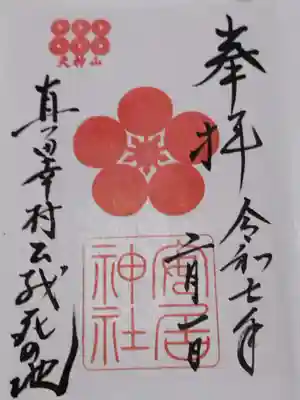 奉拝
令和七年
二月一日
安居
神社
天神山
真田幸村公戦死の地